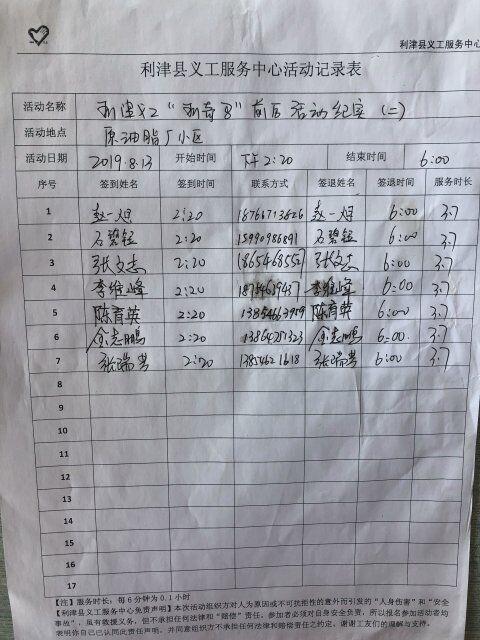 利津县义工服务中心
利津县义工服务中心活动记录表
活动名称 活动纪实（二）
活动地点 原油脂厂小区
活动日期 2019.8.13 开始时间 下午2:20 结束时间 6:00
序号 签到姓名 签到时间 联系方式 签退姓名 签退时间 服务时长
1 赵一 2:20 赵一 6:00 3.7
2 石碧 2:20 15990986891 石碧 6:00 3.7
3 张文志 2:20 张文志 6:00 3.7
4 李维峰 2:20 李维峰 6:00 3.7
5 陈育英 2:20 陈育英 6:00 3.7
6 金志鹏 2:20 金志鹏 6:00. 3.7
7 张瑞 2:20 张瑞 6:00 3.7
8
9
10
11
12
13
14
15
16
17
【注】服务时长：每6分钟为0.1小时
【利津县义工服务中心免责声明】本次活动组织方对人为原因或不可抗拒性的意外而引发的“人身伤害”和“安全
事故”，虽有救援义务，但不承担任何法律和“赔偿”责任。参加者必须对自身安全负责，所以报名参加活动者均
表明你自己已认同此责任声明。并同意组织方不承担任何法律和赔偿责任之约定。谢谢工友们的理解与支持。